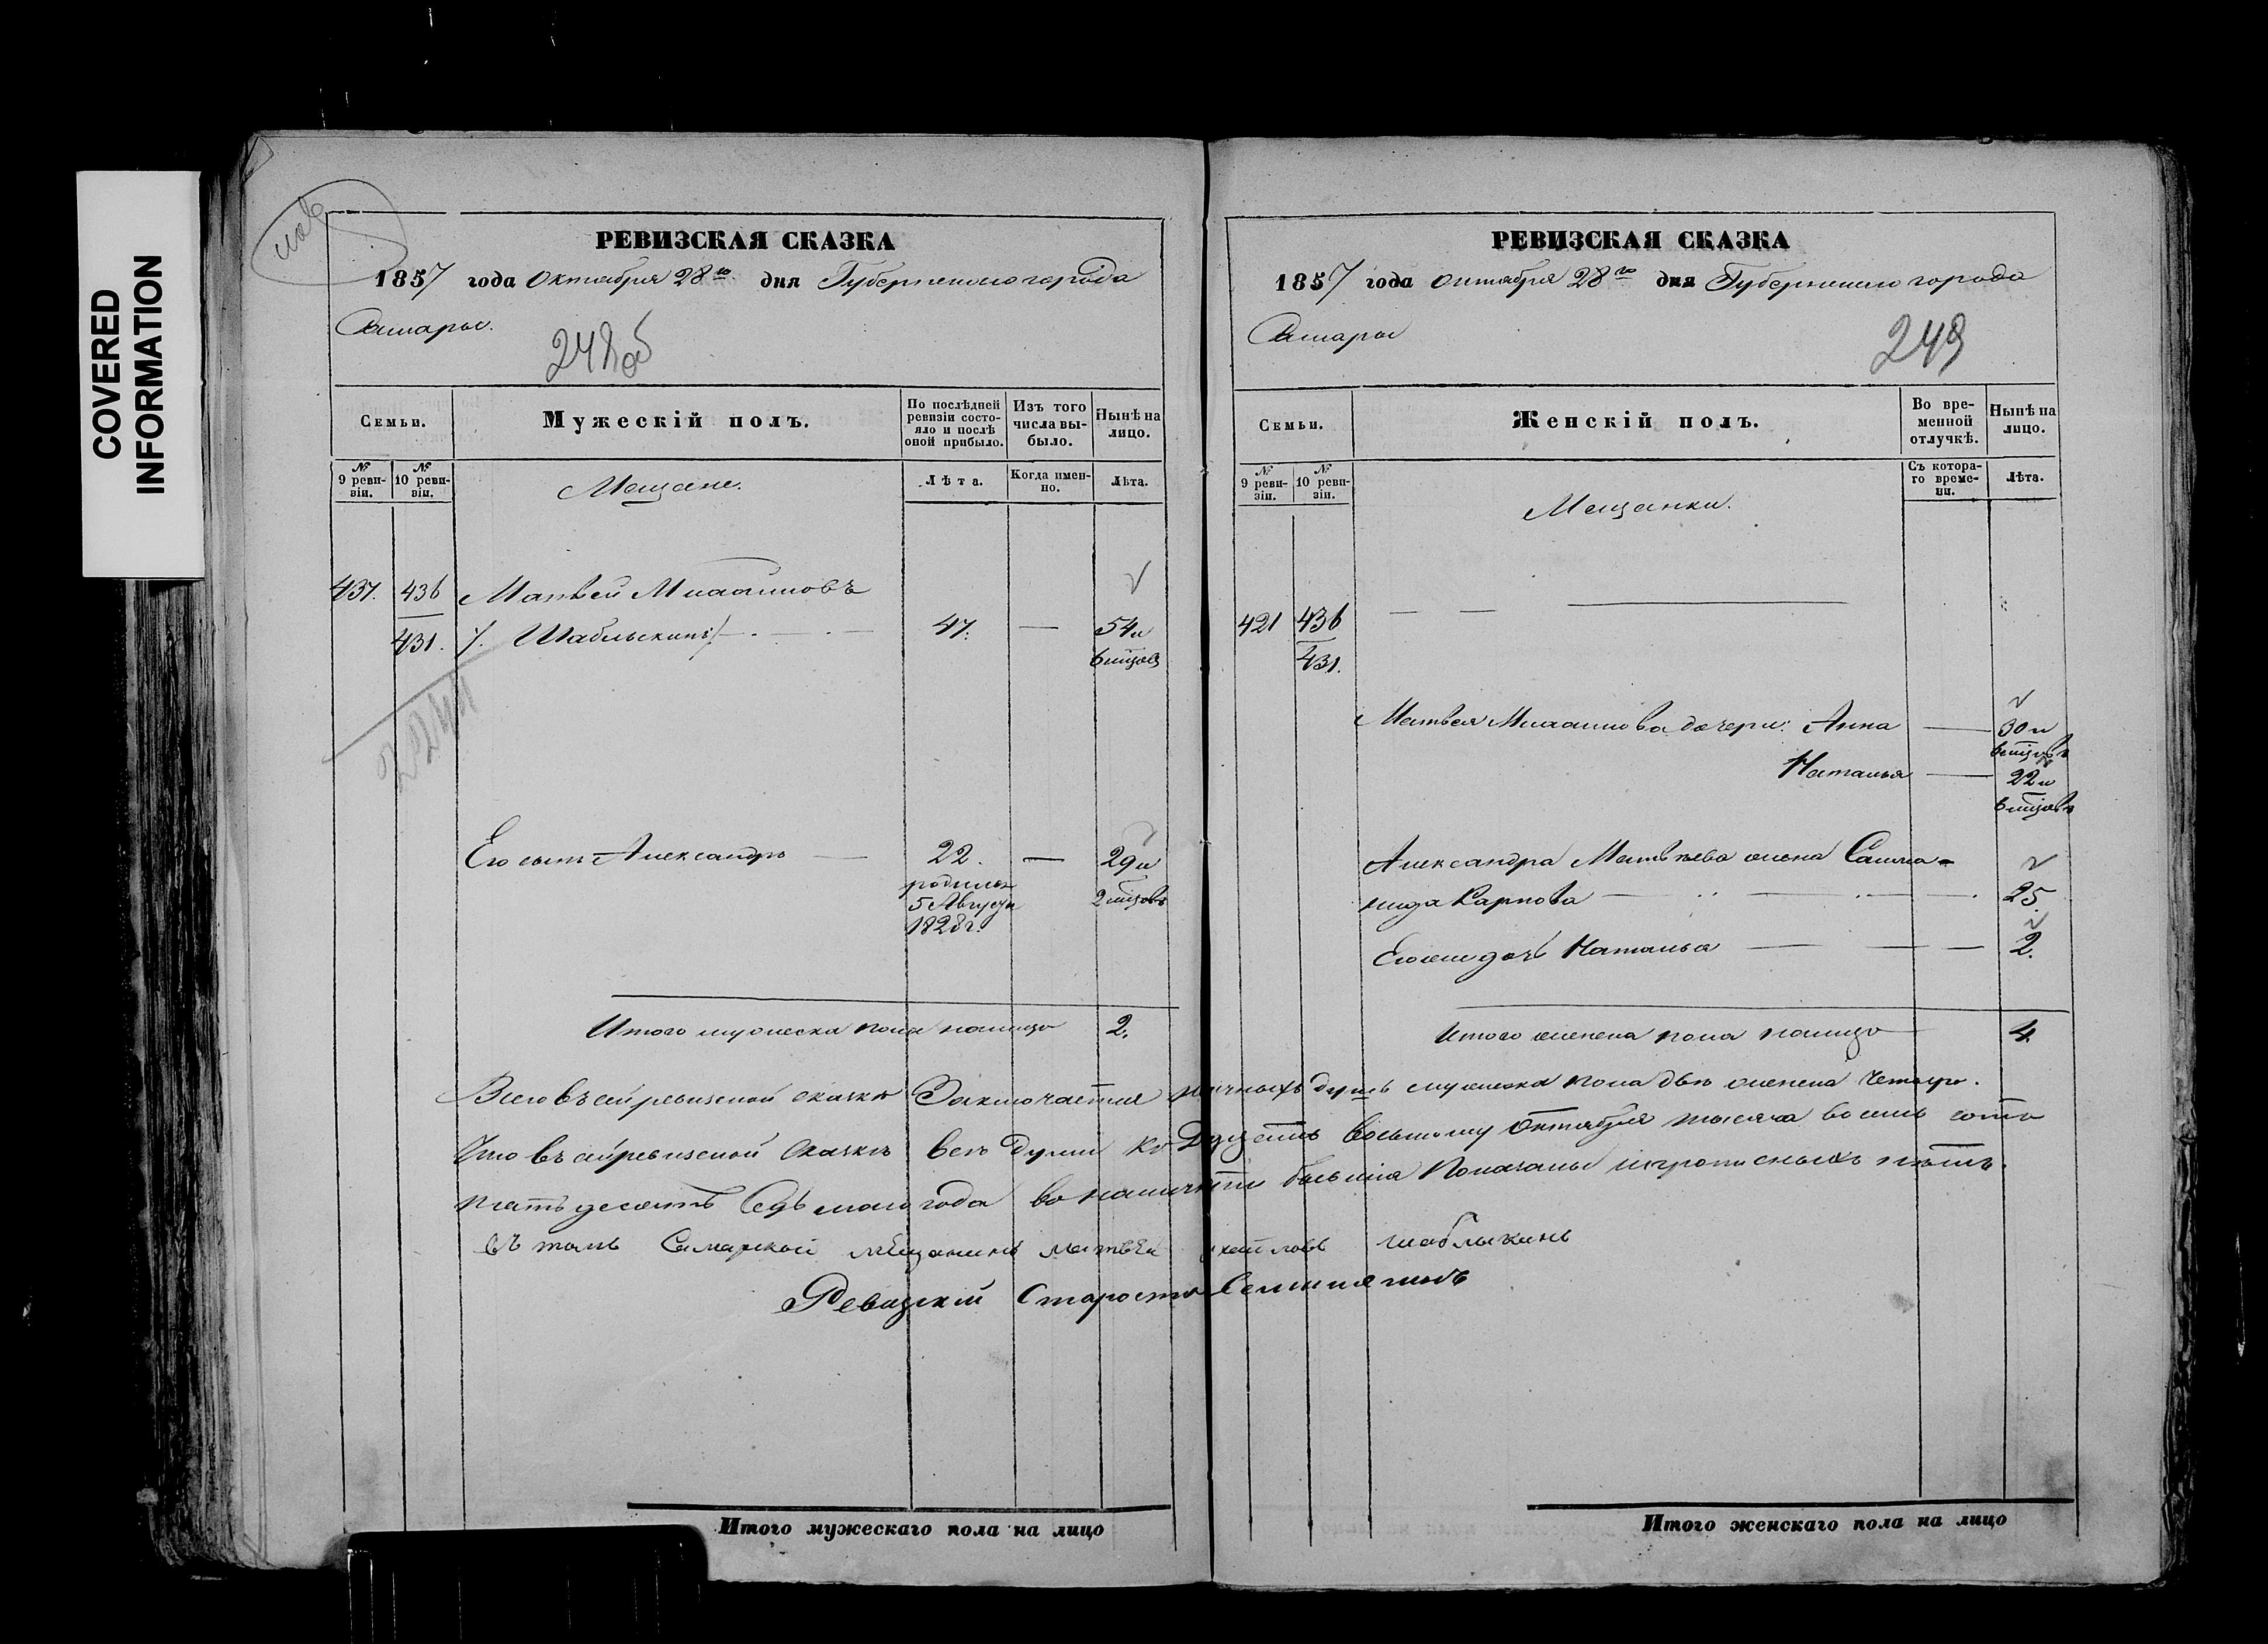 COVERED
INFORMATION
РЕВИЗСКАЯ СКАЗКА
1857 года Октября 28го дня Губернскаго города
Самары.
248об
Семьи.
Мужескій полъ.
По послѣдней ревизіи состояло и послѣ оной прибыло.
Изъ того числа выбыло.
Нынѣ на лицо.
№ 9 ревизіи.
№ 10 ревизіи.
Мещане.
Лѣта.
Когда именно.
Лѣта.
437. 436 Матвей Михайловъ
431. Шаблыкинъ 47. — 54 и
6 мцовъ
2244
Его сынъ Александръ — 22. — 29 и
родился 2 мцовъ
5 Августа
1828 г.
Итого мужеска пола налицо 2.
РЕВИЗСКАЯ СКАЗКА
1857 года Октября 28го дня Губернскаго города
Самары
249
Семьи.
Женскій полъ.
Во временной отлучкѣ.
Нынѣ на лицо.
№ 9 ревизіи.
№ 10 ревизіи.
Мещанки.
Съ котораго времени.
Лѣта.
421 436
431.
Матвея Михайлова дочери: Анна — 30 и
6 мцовъ
Наталья — 22 и
6 мцовъ
Александра Матвѣева жена
Карпова — 25.
Его же дочь Наталья — 2.
Итого женска пола налицо 4.
Всего въ сей ревизской сказкѣ Заключается личныхъ душъ мужеска пола двѣ женска Четыре.
Что въ сей ревизской Сказкѣ все души къ Двадцать восьмому Октября тысяча восемь сотъ
пятьдесятъ Седьмаго года во наличности бывшія Показаны и прописныхъ нѣтъ.
въ томъ Самарской мещанинъ матвей михайловъ шаблыкинъ
Ревизскій Староста
Итого мужескаго пола на лицо
Итого женскаго пола на лицо